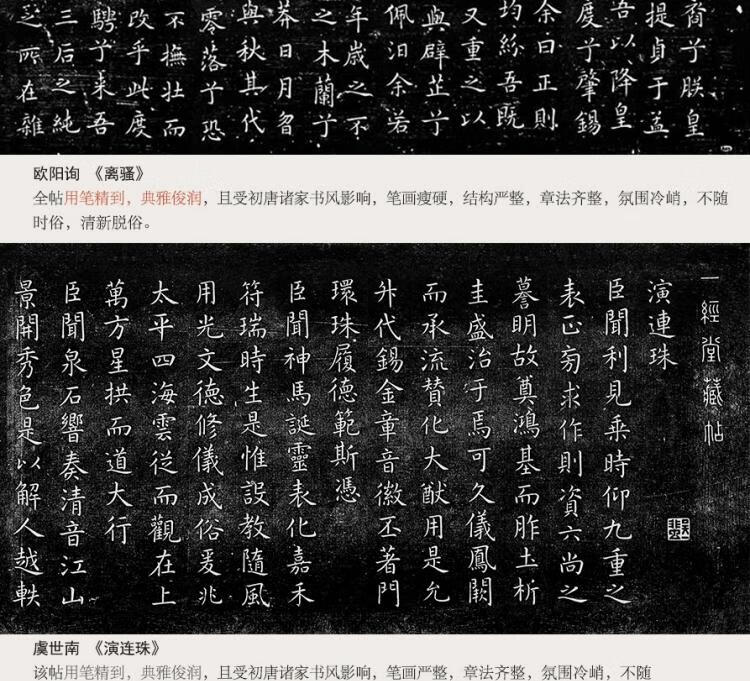 裔兮朕皇
提貞于孟
吾以降皇
度兮肇錫
余曰正則
均紛吾既
又重之以
與辟芷兮
佩汩余若
年歲之不
之木蘭兮
莽日月曶
與秋其代
零落兮恐
不撫壯而
改乎此度
騁兮來吾
三后之純
之所在雜
欧阳询 《离骚》
全帖用笔精到，典雅俊润，且受初唐诸家书风影响，笔画瘦硬，结构严整，章法齐整，氛围冷峭，不随
时俗，清新脱俗。
一經堂藏帖
演連珠
臣聞利見乘時仰九重之
表正旁求作則資六尚之
謩明故奠鴻基而胙土析
圭盛治于焉可久儀鳳闕
而承流贊化大猷用是允
升代錫金章音徽丕著門
環珠履德範斯憑
臣聞神馬誕靈表化嘉禾
符瑞時生是惟設教隨風
用光文德修儀成俗爰兆
太平四海雲從而觀在上
萬方星拱而道大行
臣聞泉石響奏清音江山
景開秀色是以解人越軼
虞世南 《演连珠》
该帖用笔精到，典雅俊润，且受初唐诸家书风影响，笔画严整，章法齐整，氛围冷峭，不随